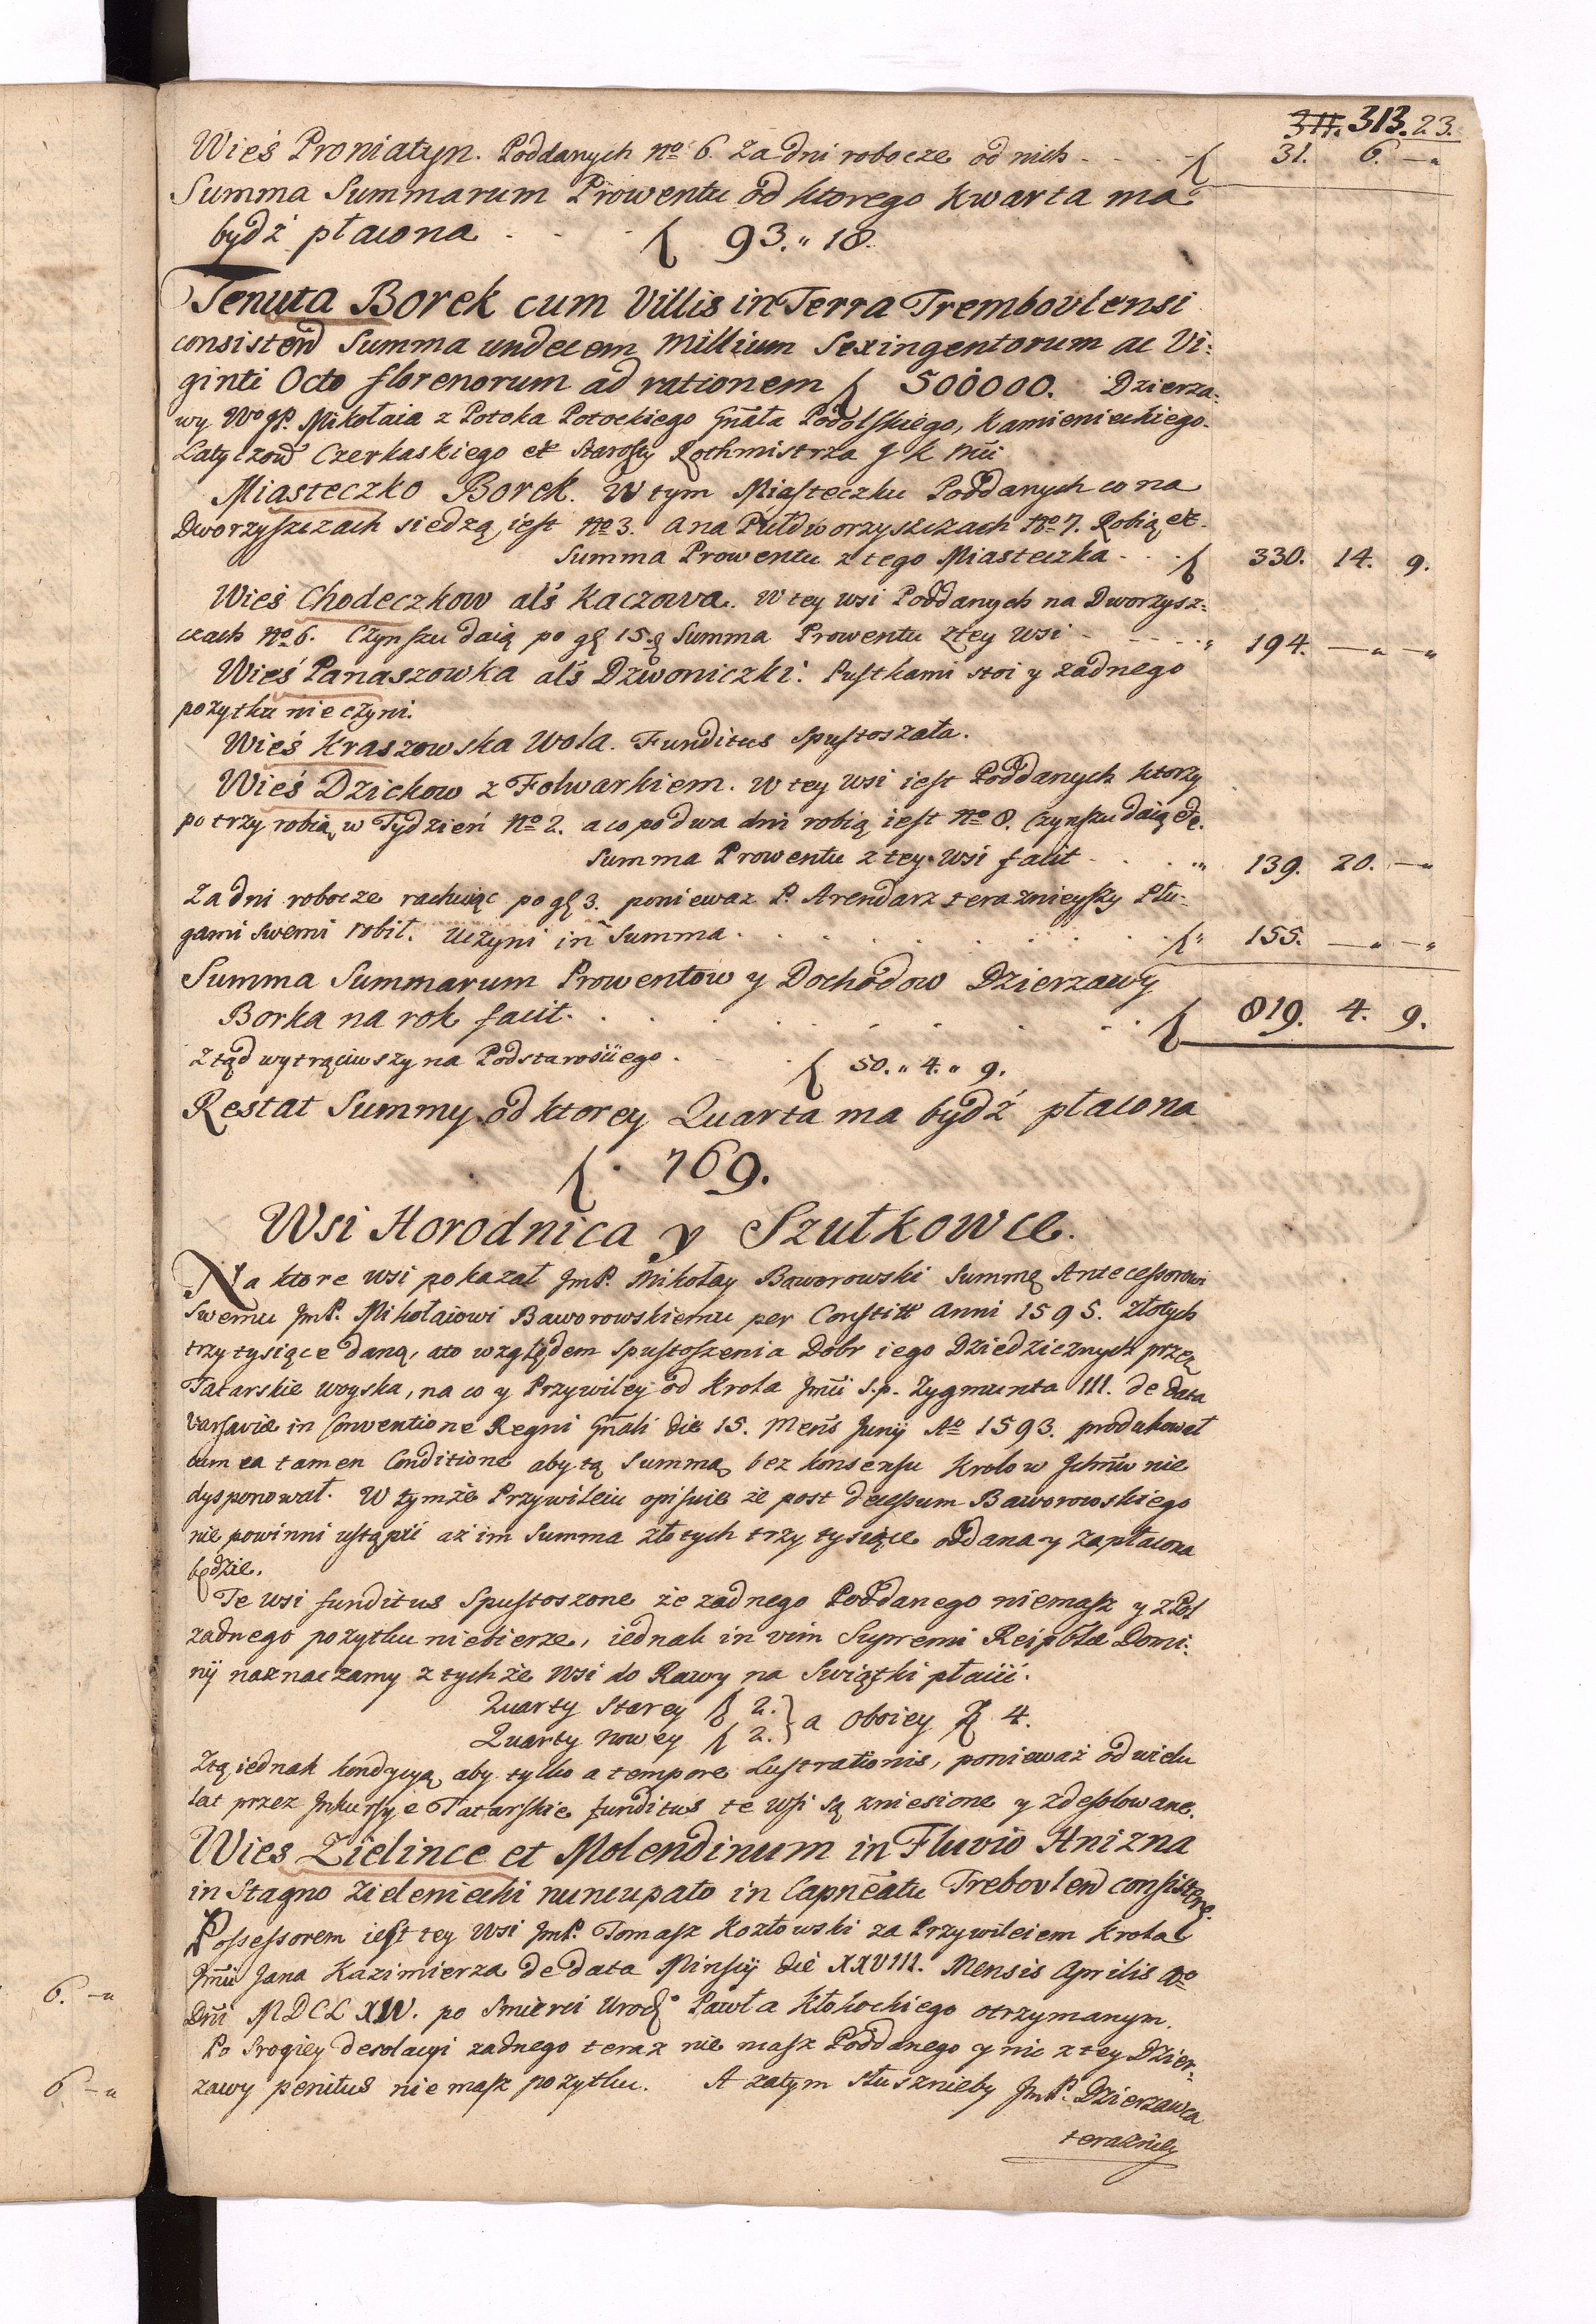 311. 313. 23.
Wieś Proniatyn. Poddanych No 6. Za dni robocze od nich - - - f 31. 6. — "
Summa Summarum Prowentu od ktorego Kwarta ma
bydź płacona . . . f 93. " 18.
Tenuta Borek cum Villis in Terra Trembovlensi
consisten Summa undecem Millium Sexingentorum ac Vi:
ginti Octo florenorum ad rationem f 500000. Dzierza:
wy Wo JP. Mikołaia z Potoka Potockiego Gnała Podolskiego, Kamienieckiego.
Latyczow Czerkaskiego et Starosty Rothmistrza J K Mci
Miasteczko Borek. W tym Miasteczku Poddanych co na
Dworzyszczach siedzą iest No 3. a na Pułdworzyszczach No 7. Robią etc.
Summa Prowentu z tego Miasteczka . . . f 330. 14. 9.
Wieś Chodeczkow als Kaczowa. W tey wsi Poddanych na Dworzysz:
czach No 6. Czynszu daią po gſ 15. Summa Prowentu z tey Wsi - - - - " 194. — " — "
Wieś Panaszowka als Dzwoniczki. Pustkami stoi y zadnego
pozytku nie czyni.
Wieś Kraszowska Wola. Funditus Spustoszała.
Wieś Dzickow z Folwarkiem. W tey wsi iest Poddanych ktorzy
po trzy robią w Tydzień No 2. a co po dwa dni robią iest No 8. Czynszu daią etc.
Summa Prowentu z tey Wsi facit . . . . " 139. 20. — "
Za dni robocze rachuiąc po gſ 3. poniewaz P. Arendarz teraznieyszy Płu:
gami swemi robił. Uczyni in Summa . . . . . . . f " 155. — " — "
Summa Summarum Prowentow y Dochodow Dzierzawy
Borka na rok facit . . . . . . . . f 819. 4. 9.
Ztąd wytrąciwszy na Podstarosciego . . . f 50. " 4. " 9.
Restat Summy od ktorey Quarta ma bydź płacona
f . 769.
Wsi Horodnica y Szutkowce.
Na ktore wsi pokazał JmP. Mikołay Baworowski Summę Antecessorowi
Swemu JmP. Mikołaiowi Baworowskiemu per Constitt Anni 1595. Złotych
trzy tysiące daną, a to względem Spustoszenia Dobr iego Dziedzicznych przez
Tatarskie woyska, na co y Przywiley od Krola Jmci S.p. Zygmunta III. de data
Varsavie in Conventione Regni Gnali die 15. Mens Juny Ao 1593. produkował
cum ea tamen Conditione aby tą Summą bez konsensu Krolow Ichmw nie
dysponował. W tymże Przywileiu opisuie że post decessum Baworowskiego
nie powinni ustąpić aż im Summa złotych trzy tysiące oddana y zapłacona
będzie.
Te wsi funditus Spustoszone że zadnego Poddanego niemasz y z Pol
zadnego pozytku niebierze, iednak in vim Supremi Reipblæ Domi:
nij naznaczamy z tychże Wsi do Rawy na Swiątki płacić.
Quarty Starey f 2.
Quarty Nowey f 2. } a Oboiey f 4.
Ztą iednak kondycyą aby tylko a tempore Lustrationis, ponieważ od wielu
lat przez Inkursye Tatarskie funditus te Wsi są zniesione y zdesolowane.
Wies Zielince et Molendinum in Fluvio Hnizna
in Stagno Zieleniecki nuncupato in Capneatu Trebovlen consistens.
Possessorem iest tey Wsi JmP. Tomasz Kozłowski za Przywileiem Krola
Jmci Jana Kazimierza de data Minscij die XXVIII. Mensis Aprilis Ao
Dni MDCLXIV. po Smierci Urodz° Pawła Kłokockiego otrzymanym.
Po Srogiey desolacyi zadnego teraz nie masz Poddanego y nic z tey Dzier:
zawy penitus nie masz pozytku. A zatym słusznieby JmP. Dzierzawca
6. — "
6 — "